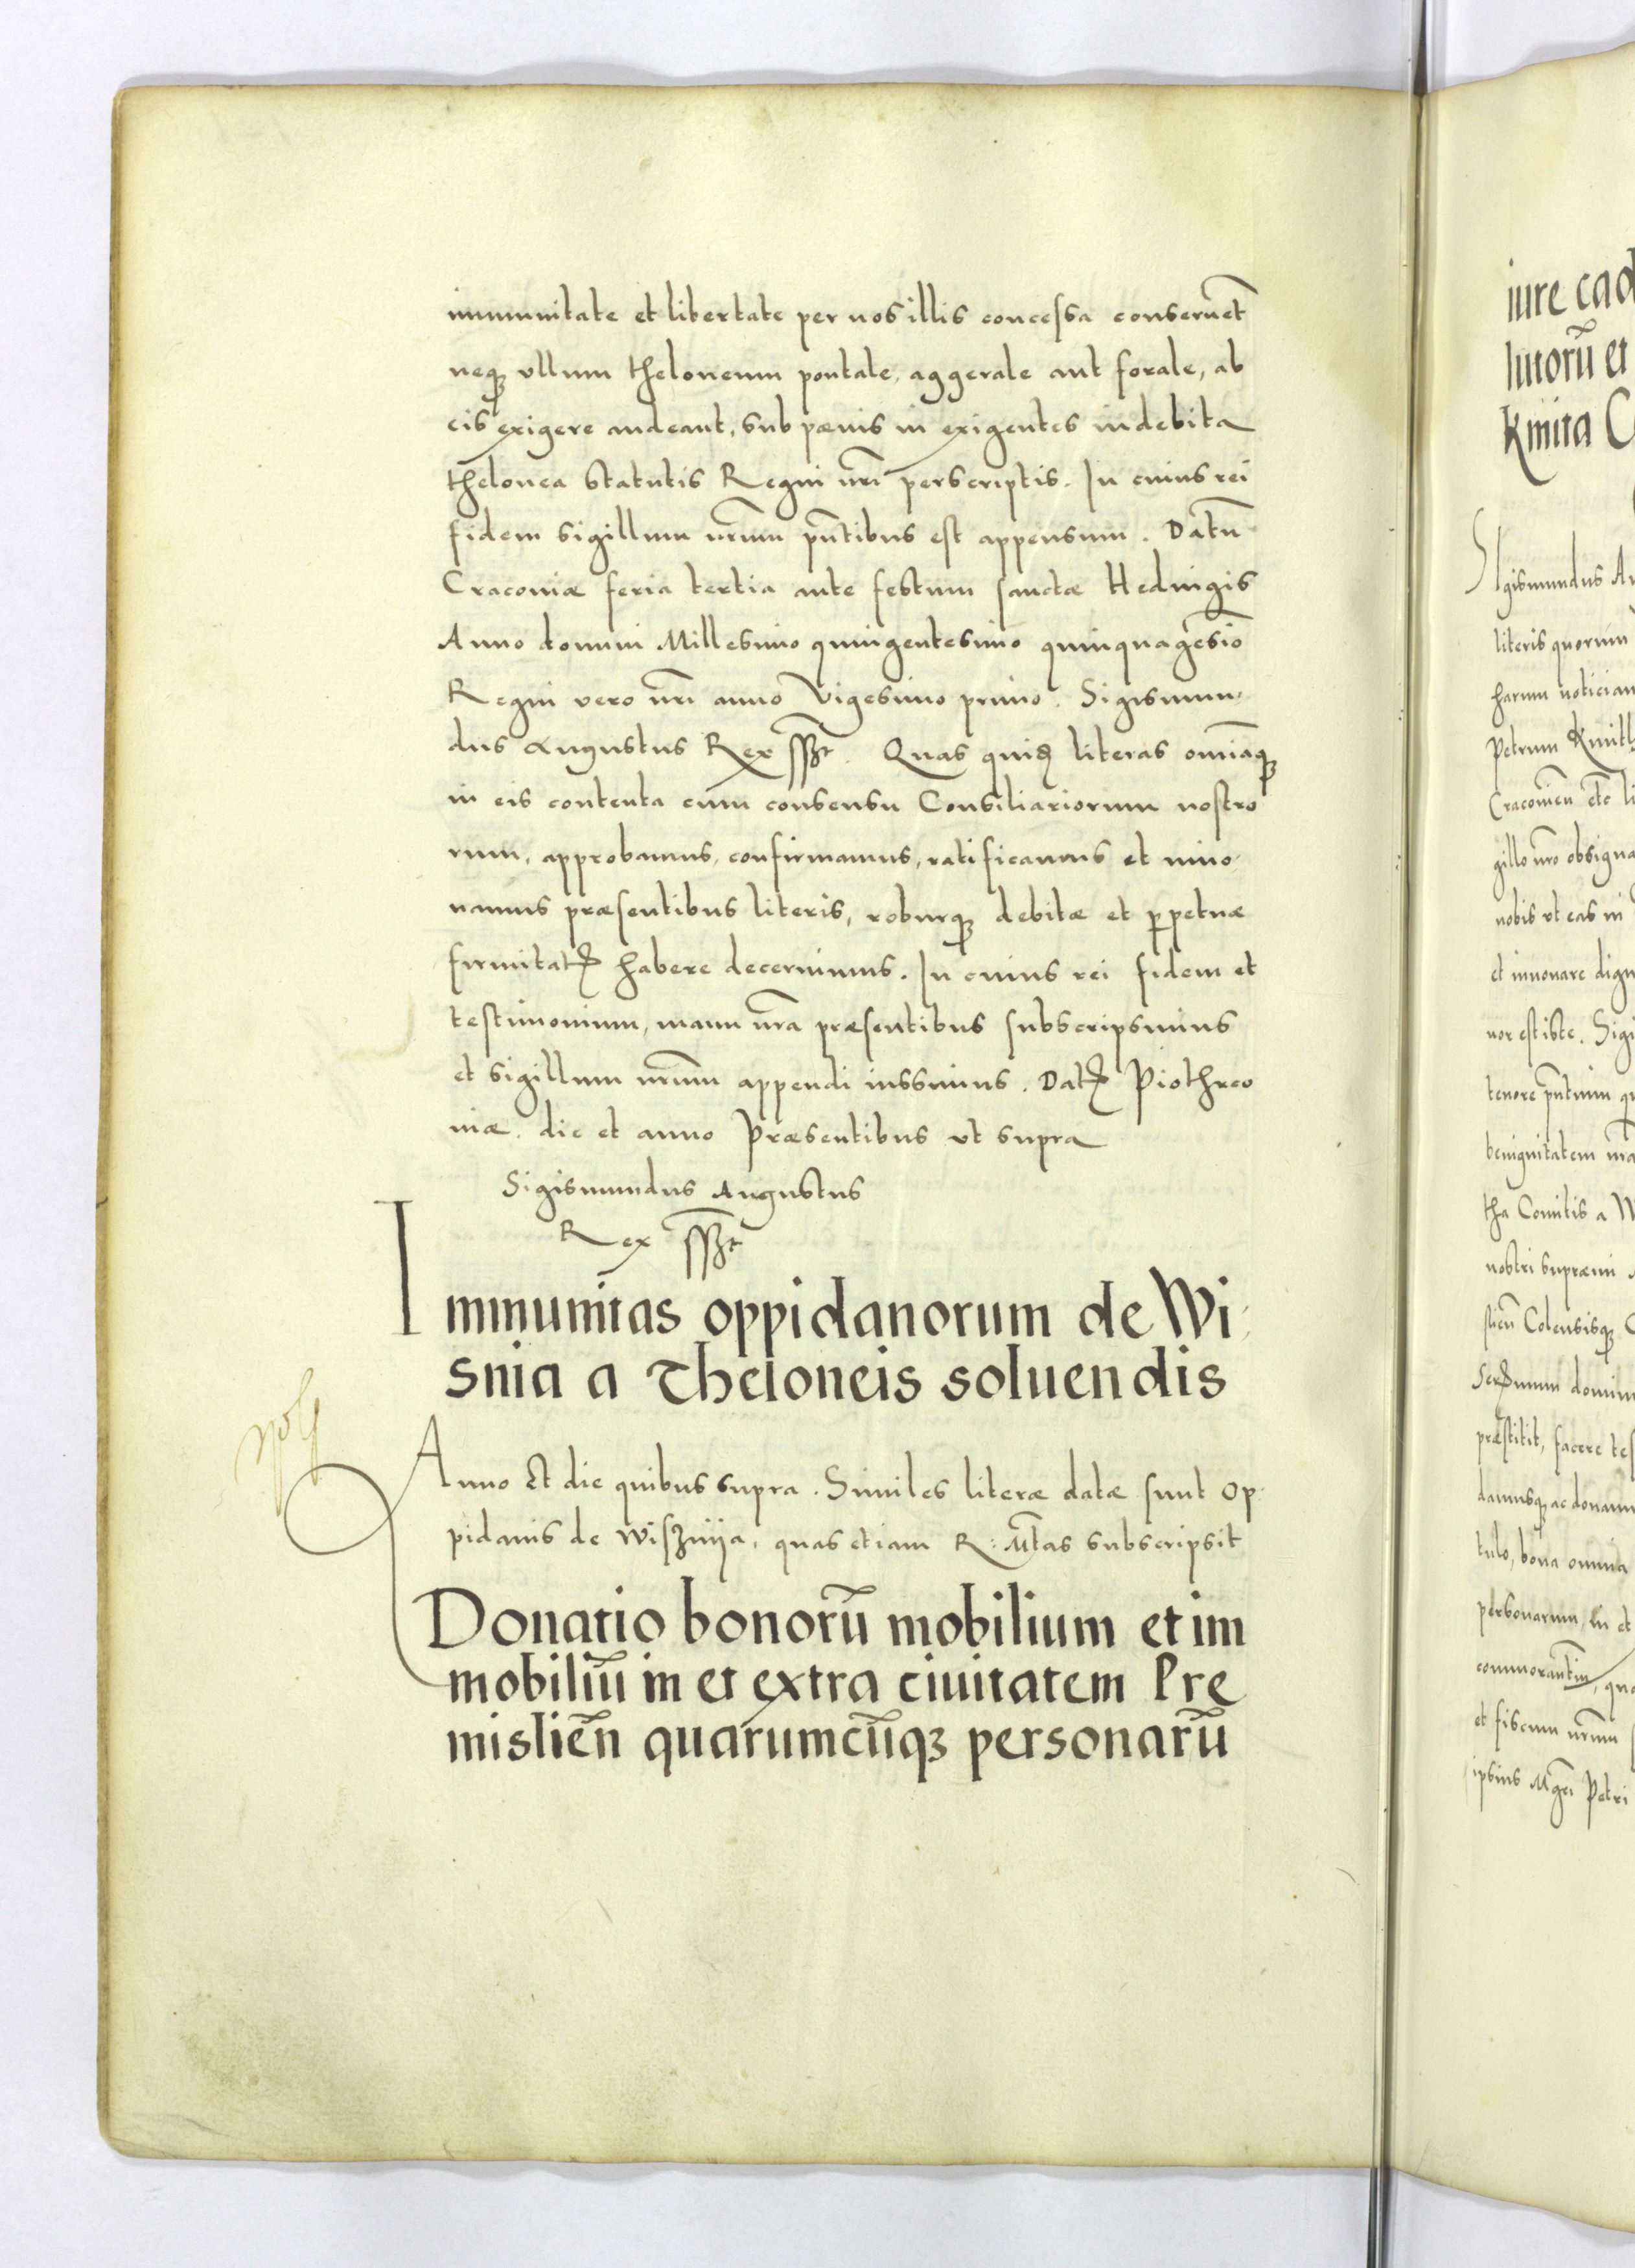 immunitate et libertate per nos illis concessa conseruẽt
neqꝫ vllum theloneum pontale, aggerale aut forale, ab
eis exigere audeant, sub pænis in exigentes indebita
thelonea statutis Regni nr̃i perscriptis. In cuius rei
fidem sigillum nr̃um pñtibus est appensum. Datũ
Cracoviæ feria tertia ante festum sanctæ Heduigis
Anno domini Millesimo quingentesimo quinquagesĩo
Regni vero nr̃i anno Vigesimo primo. Sigismun-
dus Augustus Rex sszt. Quas quiꝫ literas omĩaqꝫ
in eis contenta cum consensu Consiliariorum nostro
rum, approbamus, confirmamus, ratificamus et inno-
uamus præsentibus literis, roburqꝫ debitæ et ꝑpetuæ
firmitatꝭ habere decernimus. In cuius rei fidem et
testimonium, manu nr̃a præsentibus subscripsimus
et sigillum nr̃um appendi iussimus. Datꝭ Piothrco
uiæ. die et anno Præsentibus vt supra
Sigismundus Augustus
Rex sszt
Immunitas oppidanorum de Wi-
snia a Theloneis soluendis
Anno Et die quibus supra. Similes literæ datæ sunt Op-
pidanis de Wisznija, quas etiam R: Mt̃as subscripsit
Donatio bonorũ mobilium et im
mobiliũ in et extra ciuitatem Pre
misliẽn quarumcũqꝫ personarũ
iure cad
lutorũ et
Kmita C
Sigismundus Au
literis quorum
harum noticiam
Petrum Kmith
Cracovieñ etc̃ li
gillo nr̃o obsigna
nobis vt eas in
et innouare dign
nor est iste. Sigi
tenore pñtium qu
benignitatem nr̃a
tha Comitis a W
nostri supræmi
slieñ Colensisqꝫ C
domin
præstitit, facere tes
damusqꝫ ac donamu
tulo, bona omnia
personarum, in et
commorantiũ, qua
et fiscum nr̃um
ipsius Mgc̃i Petri